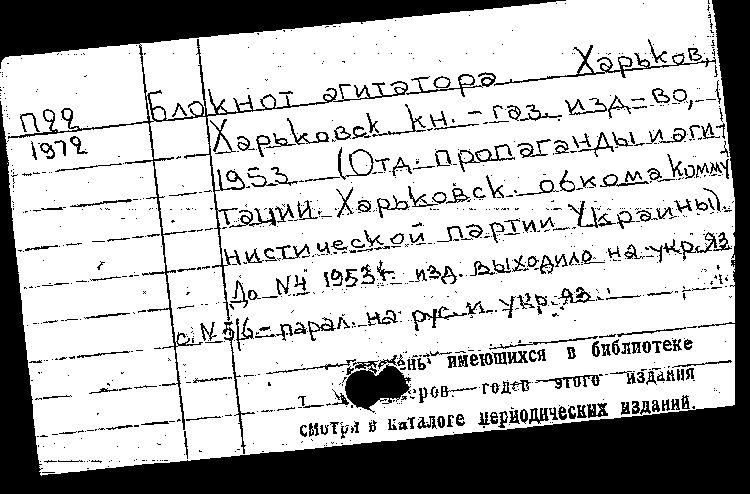 П22
1972
Блокнот агитатора. Харьков,
Харьковск. кн.-газ. изд-во,
1953 (Отд. пропаганды и аги-
тации. Харьковск. обкома Комму
нистической партии Украины).
До №4 1953г. изд. выходило на укр. яз
с №5/6 - парал. на рус. и укр. яз.
имеющихся в библиотеке
годов этого издания
смотри в каталоге периодических изданий.